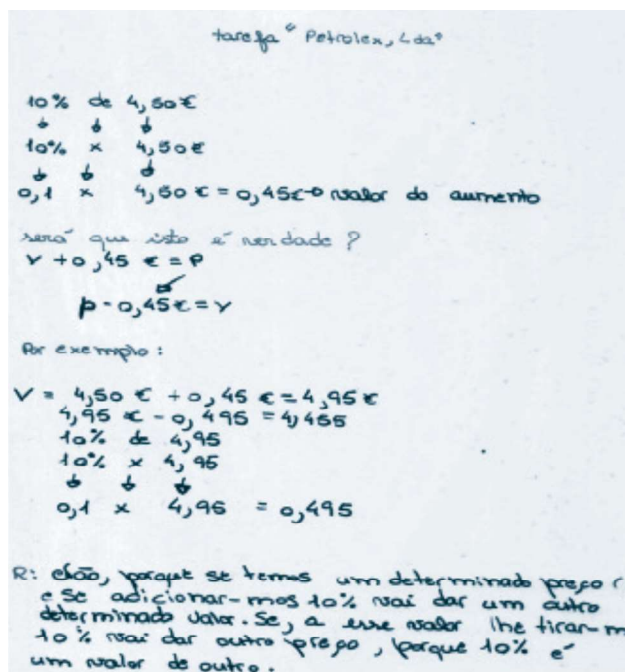 tarefa "Petrolex, Lda"
10% de 4,50€
10% x 4,50€
0,1 x 4,50 € = 0,45€ valor do aumento
será que isto é verdade ?
V + 0,45 € = P
p - 0,45€ = V
Por exemplo :
V = 4,50 € + 0,45 € = 4,95€
4,95 € - 0,495 = 4,455
10% de 4,95
10% x 4,95
0,1 x 4,95 = 0,495
R: Não, porque se temos um determinado preço
e se adicionar-mos 10% vai dar um outro
determinado valor. Se, a esse valor lhe tirar-m
10% vai dar outro preço, porque 10% é
um valor de outro.